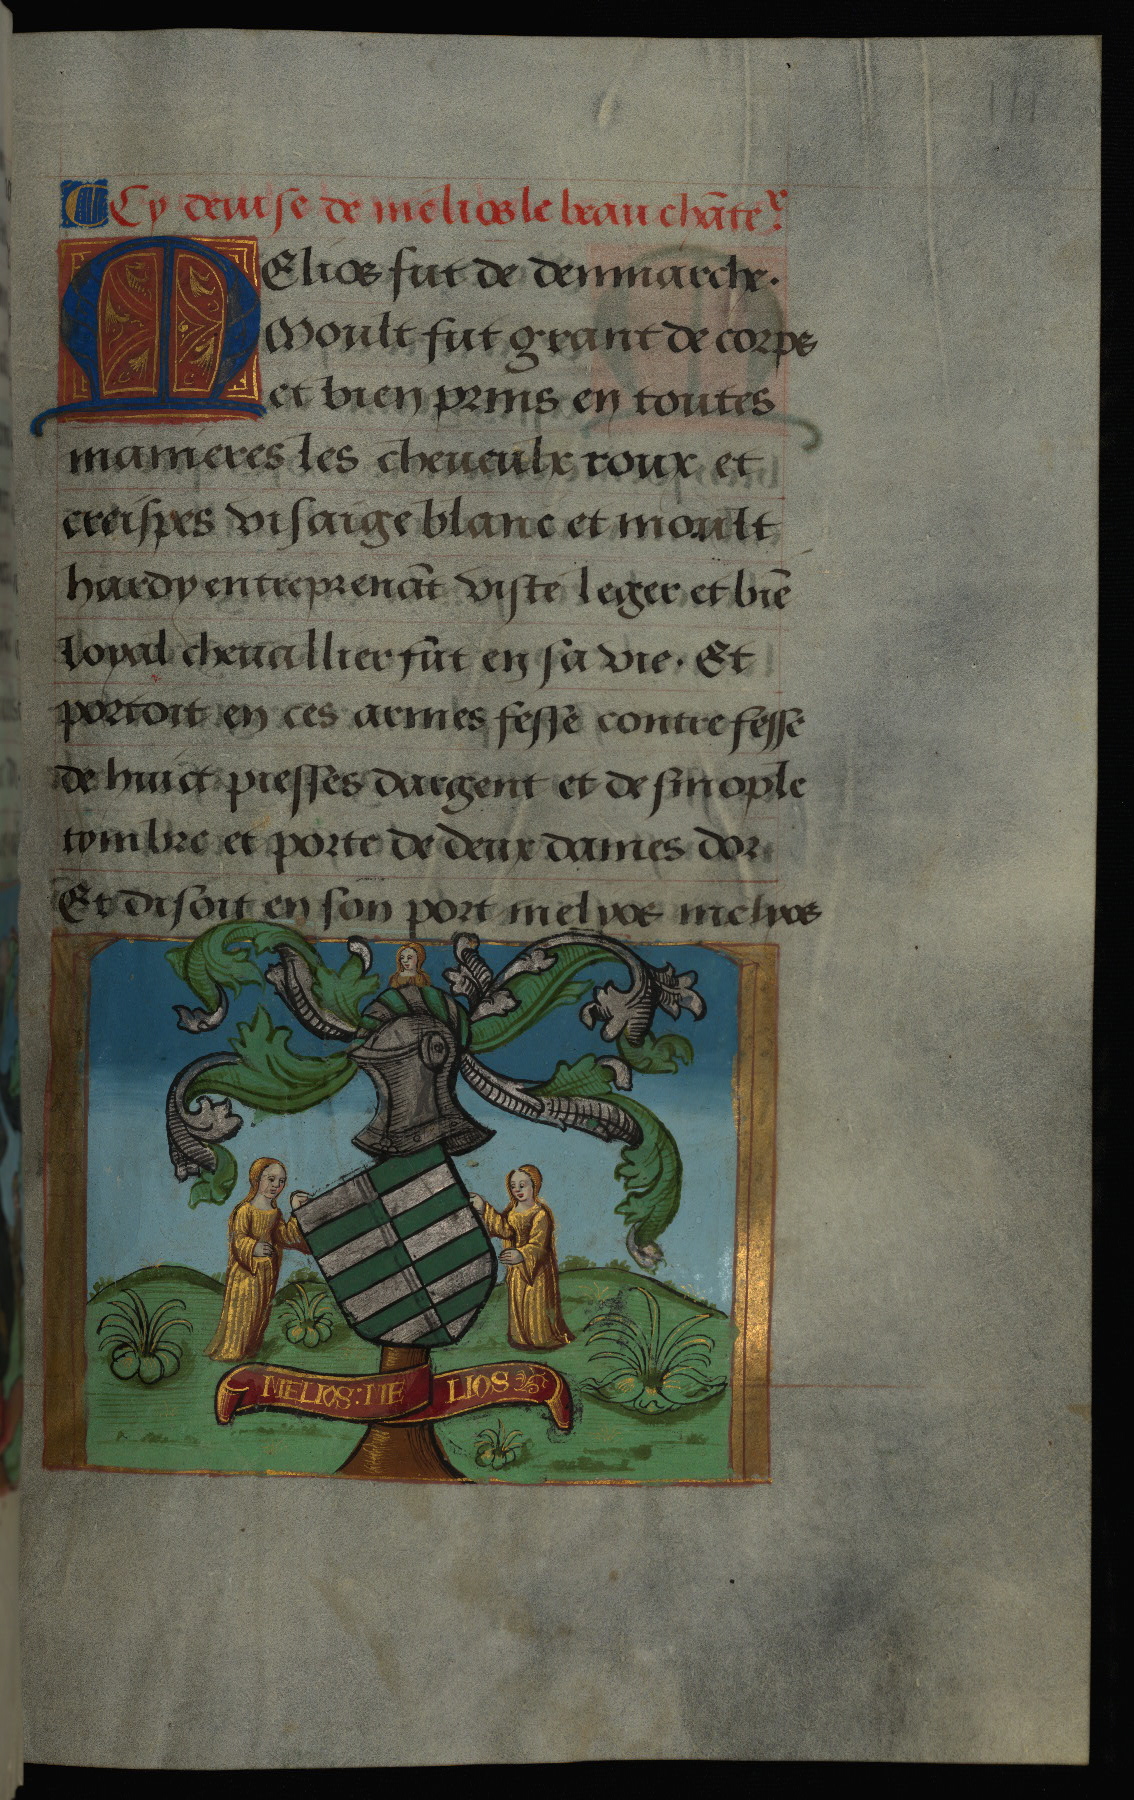 Cy deuise de melios le beau chāteʳ.
MElios fut de dennmarche.
Moult fut grant de corps
et bien prins en toutes
manieres les cheueulx roux et
creispes visaige blanc et moult
hardy entreprenāt viste leger et biē
loyal cheuallier fut en sa vie. Et
portoit en ces armes fesse contrefesse
de huict piesses dargent et de sinople
tymbre et porte de deux dames dor.
Et disoit en son port melyos melyos
MELIOS: ME LIOS